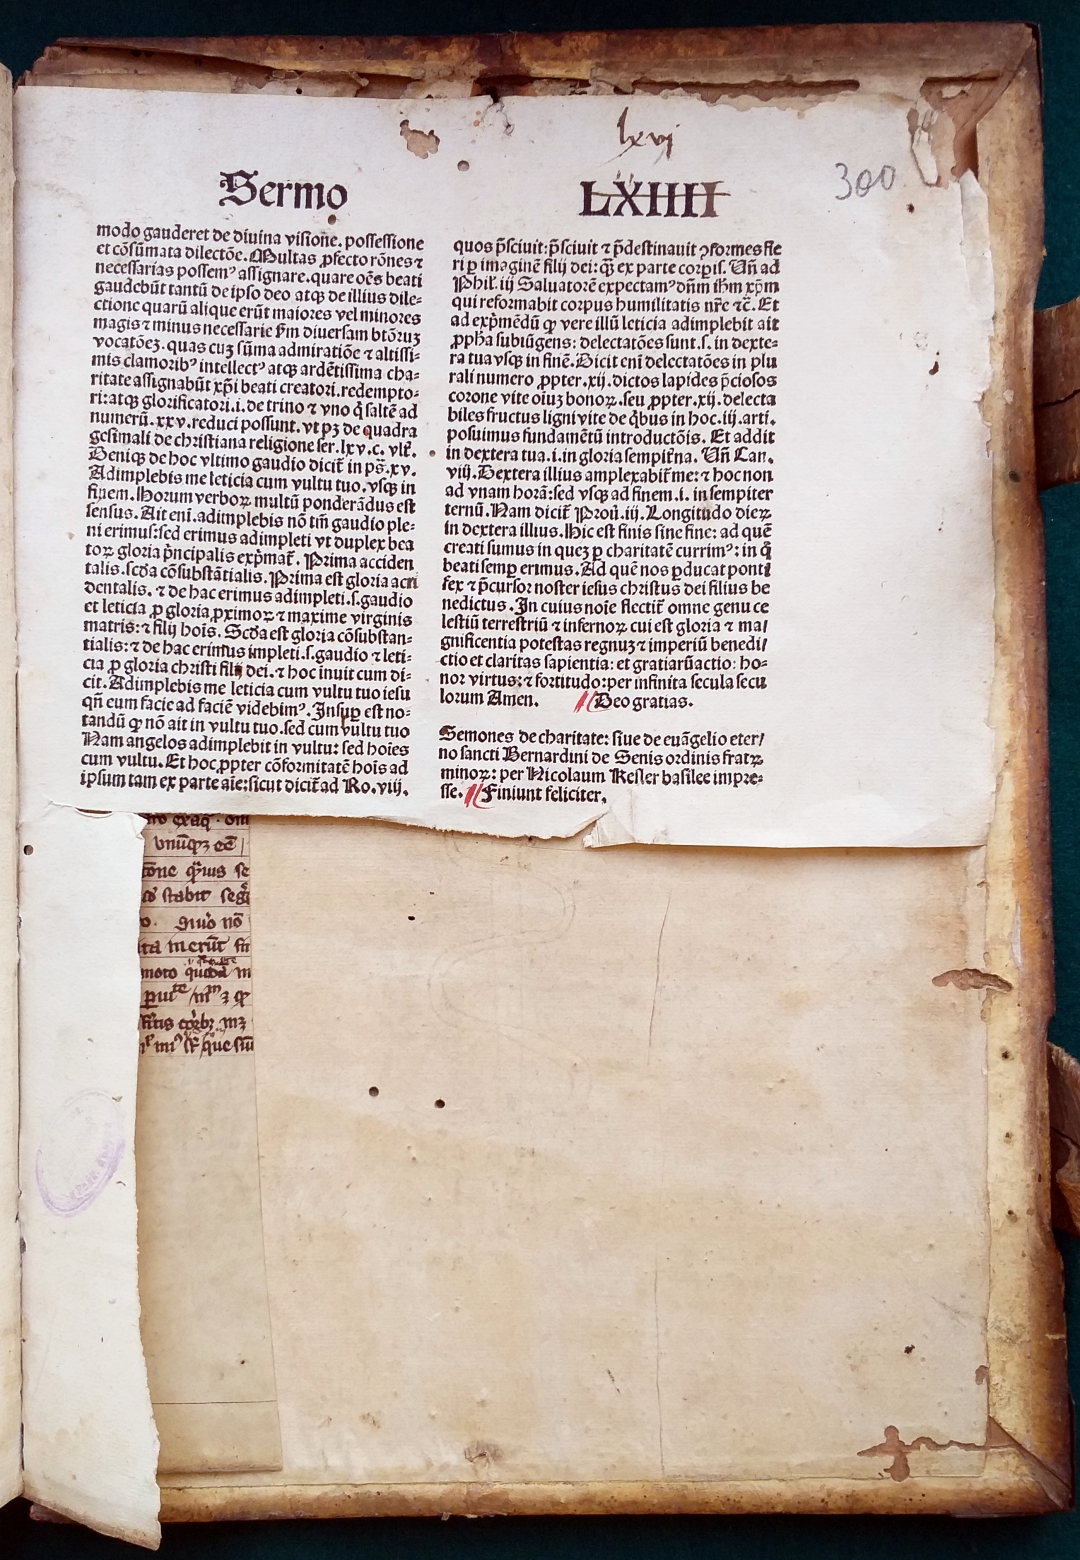 lxvj
300
Sermo
LXIIII
modo gauderet de diuina visione. possessione
et cōsũmata dilectōe. Multas ꝓfecto rōnes ⁊
necessarias possemꝰ assignare. quare oēs beati
gaudebūt tantū de ipso deo atqꝫ de illius dile⸗
ctione quarū alique erūt maiores vel minores
magis ⁊ minus necessarie ẜm diuersam btōruꝫ
vocatōeꝫ. quas cuꝫ sūma admiratiōe ⁊ altissi⸗
mis clamoribꝰ intellectꝰ atqꝫ ardētissima cha⸗
ritate assignabūt xp̄i beati creatori. redempto⸗
ri: atqꝫ glorificatori .i. de trino ⁊ vno q̇ saltē ad
numerū .xxv. reduci possunt. vt pꝫ de quadra
gesimali de christiana religione ser. lxv. c. vlt̄.
Deniqꝫ de hoc vltimo gaudio dicit̄ in ps̄. xv.
Adimplebis me leticia cum vultu tuo. vsqꝫ in
finem. Horum verboꝝ multū ponderādus est
sensus. Ait eni̅. adimplebis nō tm̄ gaudio ple⸗
ni erimus: sed erimus adimpleti vt duplex bea
toꝝ gloria p̄ncipalis exp̄mat̄. Prima acciden
talis. scḋa cōsubstātialis. Prima est gloria acci
dentalis. ⁊ de hac erimus adimpleti .s. gaudio
et leticia ꝓ gloria ꝓximoꝝ ⁊ maxime virginis
matris: ⁊ filij hoīs. Scḋa est gloria cōsubstan⸗
tialis: ⁊ de hac erimus impleti .s. gaudio ⁊ leti⸗
cia ꝓ gloria christi filij dei. ⁊ hoc inuit cum di⸗
cit. Adimplebis me leticia cum vultu tuo iesu
qn̄ eum facie ad faciē videbimꝰ. Insuꝑ est no⸗
tandū ꝙ nō ait in vultu tuo. sed cum vultu tuo
Nam angelos adimplebit in vultu: sed hoīes
cum vultu. Et hoc ꝓpter cōformitatē hoīs ad
ipsum tam ex parte aīe: sicut dicit̄ ad Ro. viij.
quos p̄sciuit: p̄sciuit ⁊ p̄destinauit ꝯformes fie
ri ꝑ imaginē filij dei: q̄ꝫ ex parte corꝑis. Vn̄ ad
Phil. iij Saluatorē expectamꝰ dn̄m ih̄m xp̄m
qui reformabit corpus humilitatis nr̄e ⁊c̄. Et
ad exp̄mēdū ꝙ vere illū leticia adimplebit ait
ꝓpha subiūgens: delectatōes sunt .s. in dexte⸗
ra tua vsqꝫ in finē. Dicit eni̅ delectatōes in plu
rali numero ꝓpter .xij. dictos lapides p̄ciosos
corone vite oīuꝫ bonoꝝ. seu ꝓpter .xij. delecta
biles fructus ligni vite de q̇bus in hoc .iij. arti.
posuimus fundamētū introductōis. Et addit
in dextera tua .i. in gloria sempit̄na. Vn̄ Can.
viij. Dextera illius amplexabit̄ me: ⁊ hoc non
ad vnam horā: sed vsqꝫ ad finem .i. in sempiter
ternū. Nam dicit̄ Proū. iij. Longitudo dieꝝ
in dextera illius. Hic est finis sine fine: ad quē
creati sumus in queꝫ ꝑ charitatē currimꝰ: in q̊
beati semꝑ erimus. Ad quē nos ꝑducat ponti
fex ⁊ p̄cursor noster iesus christus dei filius be
nedictus. In cuius noīe flectit̄ omne genu ce
lestiū terrestriū ⁊ infernoꝝ cui est gloria ⁊ ma/
gnificentia potestas regnuꝫ ⁊ imperiū benedi/
ctio et claritas sapientia: et gratiarū actio: ho⸗
nor virtus: ⁊ fortitudo: per infinita secula secu
lorum Amen. Deo gratias.
Semones de charitate: siue de euāgelio eter/
no sancti Bernardini de Senis ordinis fratꝝ
minoꝝ: per Nicolaum Kesler basilee impre⸗
sse. Finiunt feliciter.
vnūqꝫ eē
stabit
nō
ita merūt
moto